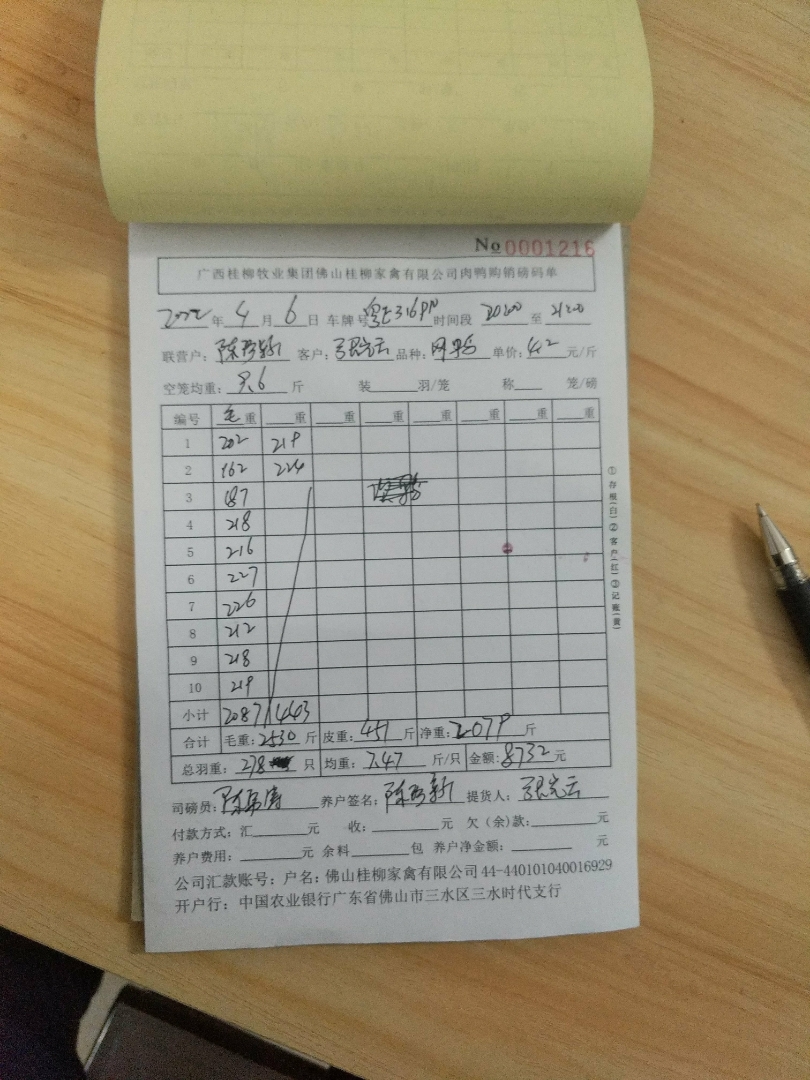 No 0001216
广西桂柳牧业集团佛山桂柳家禽有限公司肉鸭购销磅码单
2022 年 4 月 6 日 车牌号 粤E316PN 时间段 2020 至 2120
联营户： 客户： 品种： 单价：4.2 元/斤
空笼均重： 斤 装 羽/笼 称 笼/磅
编号 毛重 重 重 重 重 重 重 重
1 202 219
2 162 224
3 187
4 218
5 216
6 227
7 226
8 212
9 218
10 219
小计 2087 443
合计 毛重：2530 斤 皮重：451 斤 净重：2079 斤
总羽重：278 只 均重：7.47 斤/只 金额：8732 元
司磅员： 养户签名： 提货人：
付款方式：汇 元 收： 元 欠（余）款： 元
养户费用： 元 余料 包 养户净金额： 元
公司汇款账号：户名：佛山桂柳家禽有限公司 44-440101040016929
开户行：中国农业银行广东省佛山市三水区三水时代支行
①存根(白)②客户(红)③记账(黄)